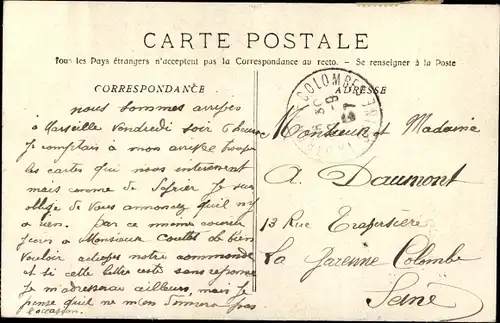 CARTE POSTALE
Tous les Pays étrangers n'acceptent pas la Correspondance au recto. - Se renseigner à la Poste
CORRESPONDANCE
nous sommes arrives
à Marseille Vendredi soir 6 heures
Je comptais à mon arrivé
les cartes qui nous interessent
mais comme de Je suis
obligé de Vous annoncez qu'il n'y
a rien. Par ce même courrier
J'ecris a Monsieur de bien
Vouloir notre commande
et si cette lettre reste sans reponse
Je m'adresserai ailleurs, mais Je
pense qu'il ne m'en donnera pas
l'occasion.
ADRESSE
Monsieur et Madame
A. Daumont
13 Rue Traversière
La Garenne Colombe
Seine
COLOMBES
SEINE